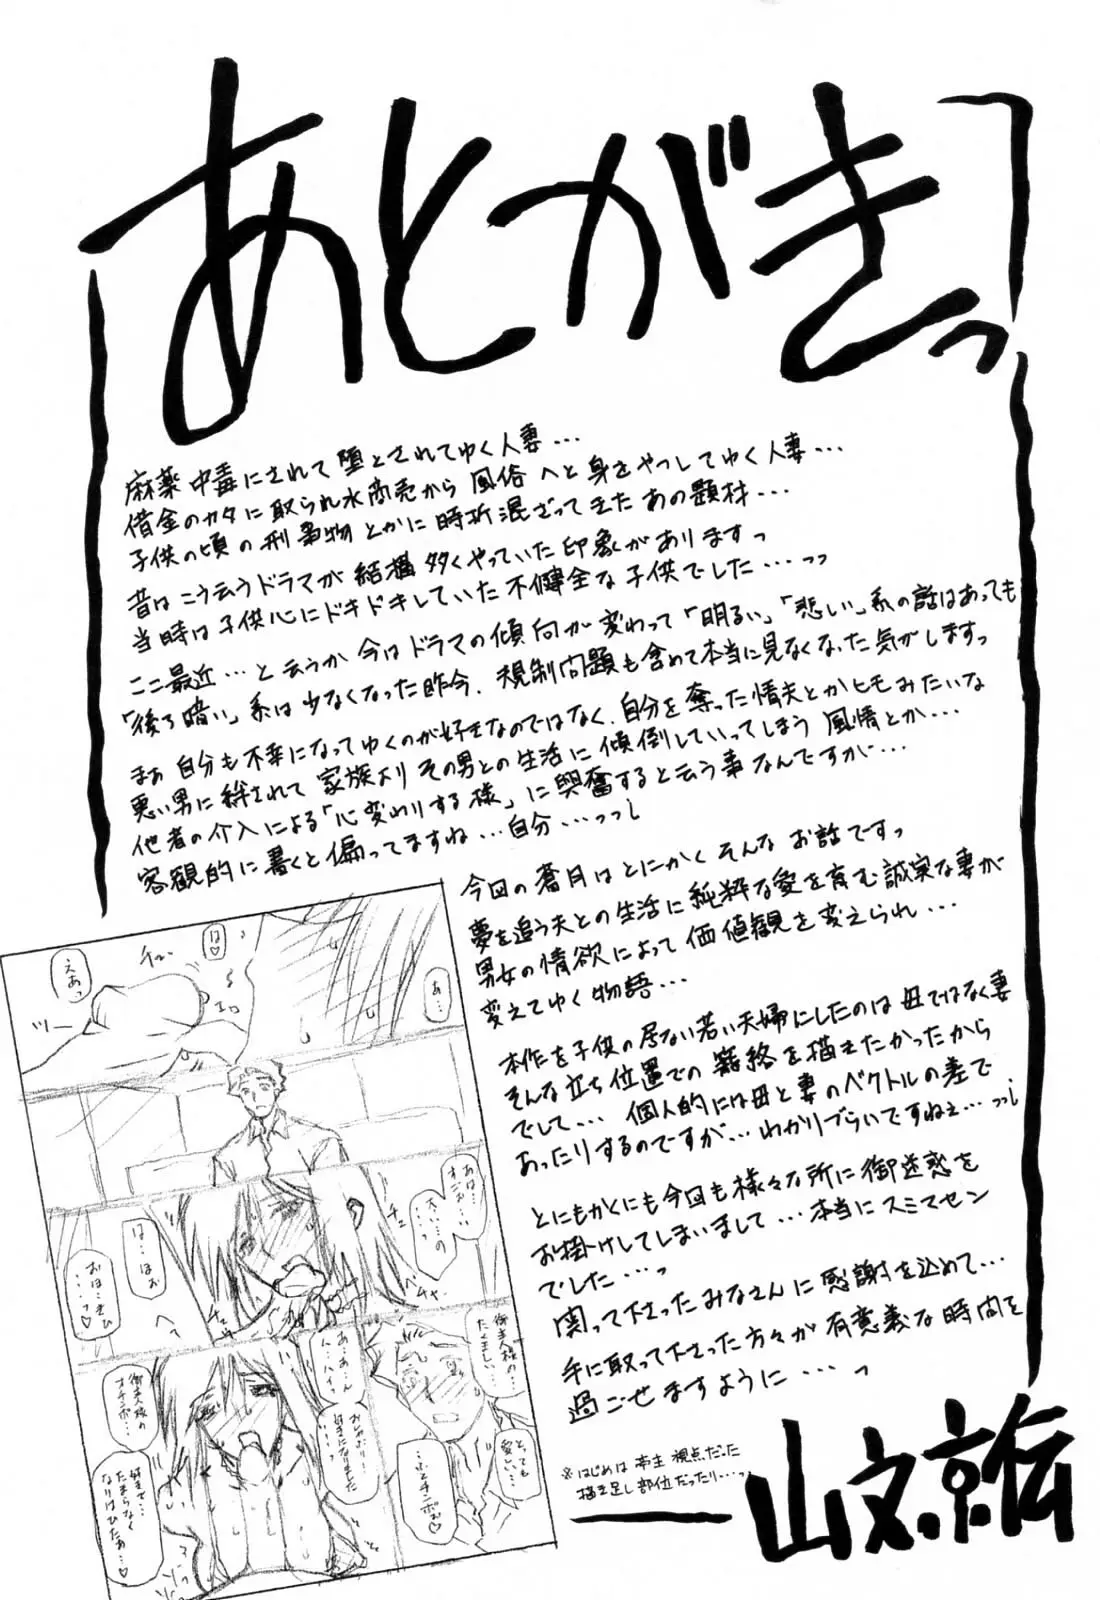 あとがきっ
麻薬中毒にされて堕とされてゆく人妻・・・
借金のカタに取られ水商売から風俗へと身をやつしてゆく人妻・・・
子供の頃の刑事物とかに時折混ざってきたあの題材・・・
昔はこう云うドラマが結構多くやっていた印象がありますっ
当時は子供心にドキドキしていた不健全な子供でした・・・っっ
ここ最近・・・と云うか今はドラマの傾向が変わって「明るい」「悲しい」系の話はあっても
「後ろ暗い」系は少なくなった昨今、規制問題も含めて本当に見なくなった気がしますっ
まぁ自分も不幸になってゆくのが好きなのではなく、自分を奪った情夫とかヒモみたいな
悪い男に絆されて家族よりその男との生活に傾倒していってしまう風情とか・・・
他者の介入による「心変わりする様」に興奮すると云う事なんですが・・・
客観的に書くと偏ってますね・・・自分・・・っっ
今回の蒼月はとにかくそんなお話ですっ
夢を追う夫との生活に純粋な愛を育む誠実な妻が
男女の情欲によって価値観を変えられ・・・
変えてゆく物語・・・
本作を子供の居ない若い夫婦にしたのは母ではなく妻
そんな立ち位置での籠絡を描えたかったから
でして・・・個人的には母と妻のベクトルの差で
あったりするのですが・・・わかりづらいですねぇ・・・っっ
とにもかくにも今回も様々な所に御迷惑を
お掛けしてしまいまして・・・本当にスミマセン
でした・・・っ
関って下さったみなさんに感謝を込めて・・・
手に取って下さった方々が有意義な時間を
過ごせますように・・・っ
※はじめは亭主視点だった
描き足し部位だったり・・・っっ
山文京伝
えあっ
チュ
は♡
あ・・・
ツー
は・・・はお
チュ
御主人様の・・・
たくましい・・・
とっても
愛しい・・・
御主人様の
オチンポ・・・
好きで・・・
たまらなく
なりはひたぁ・・・♡